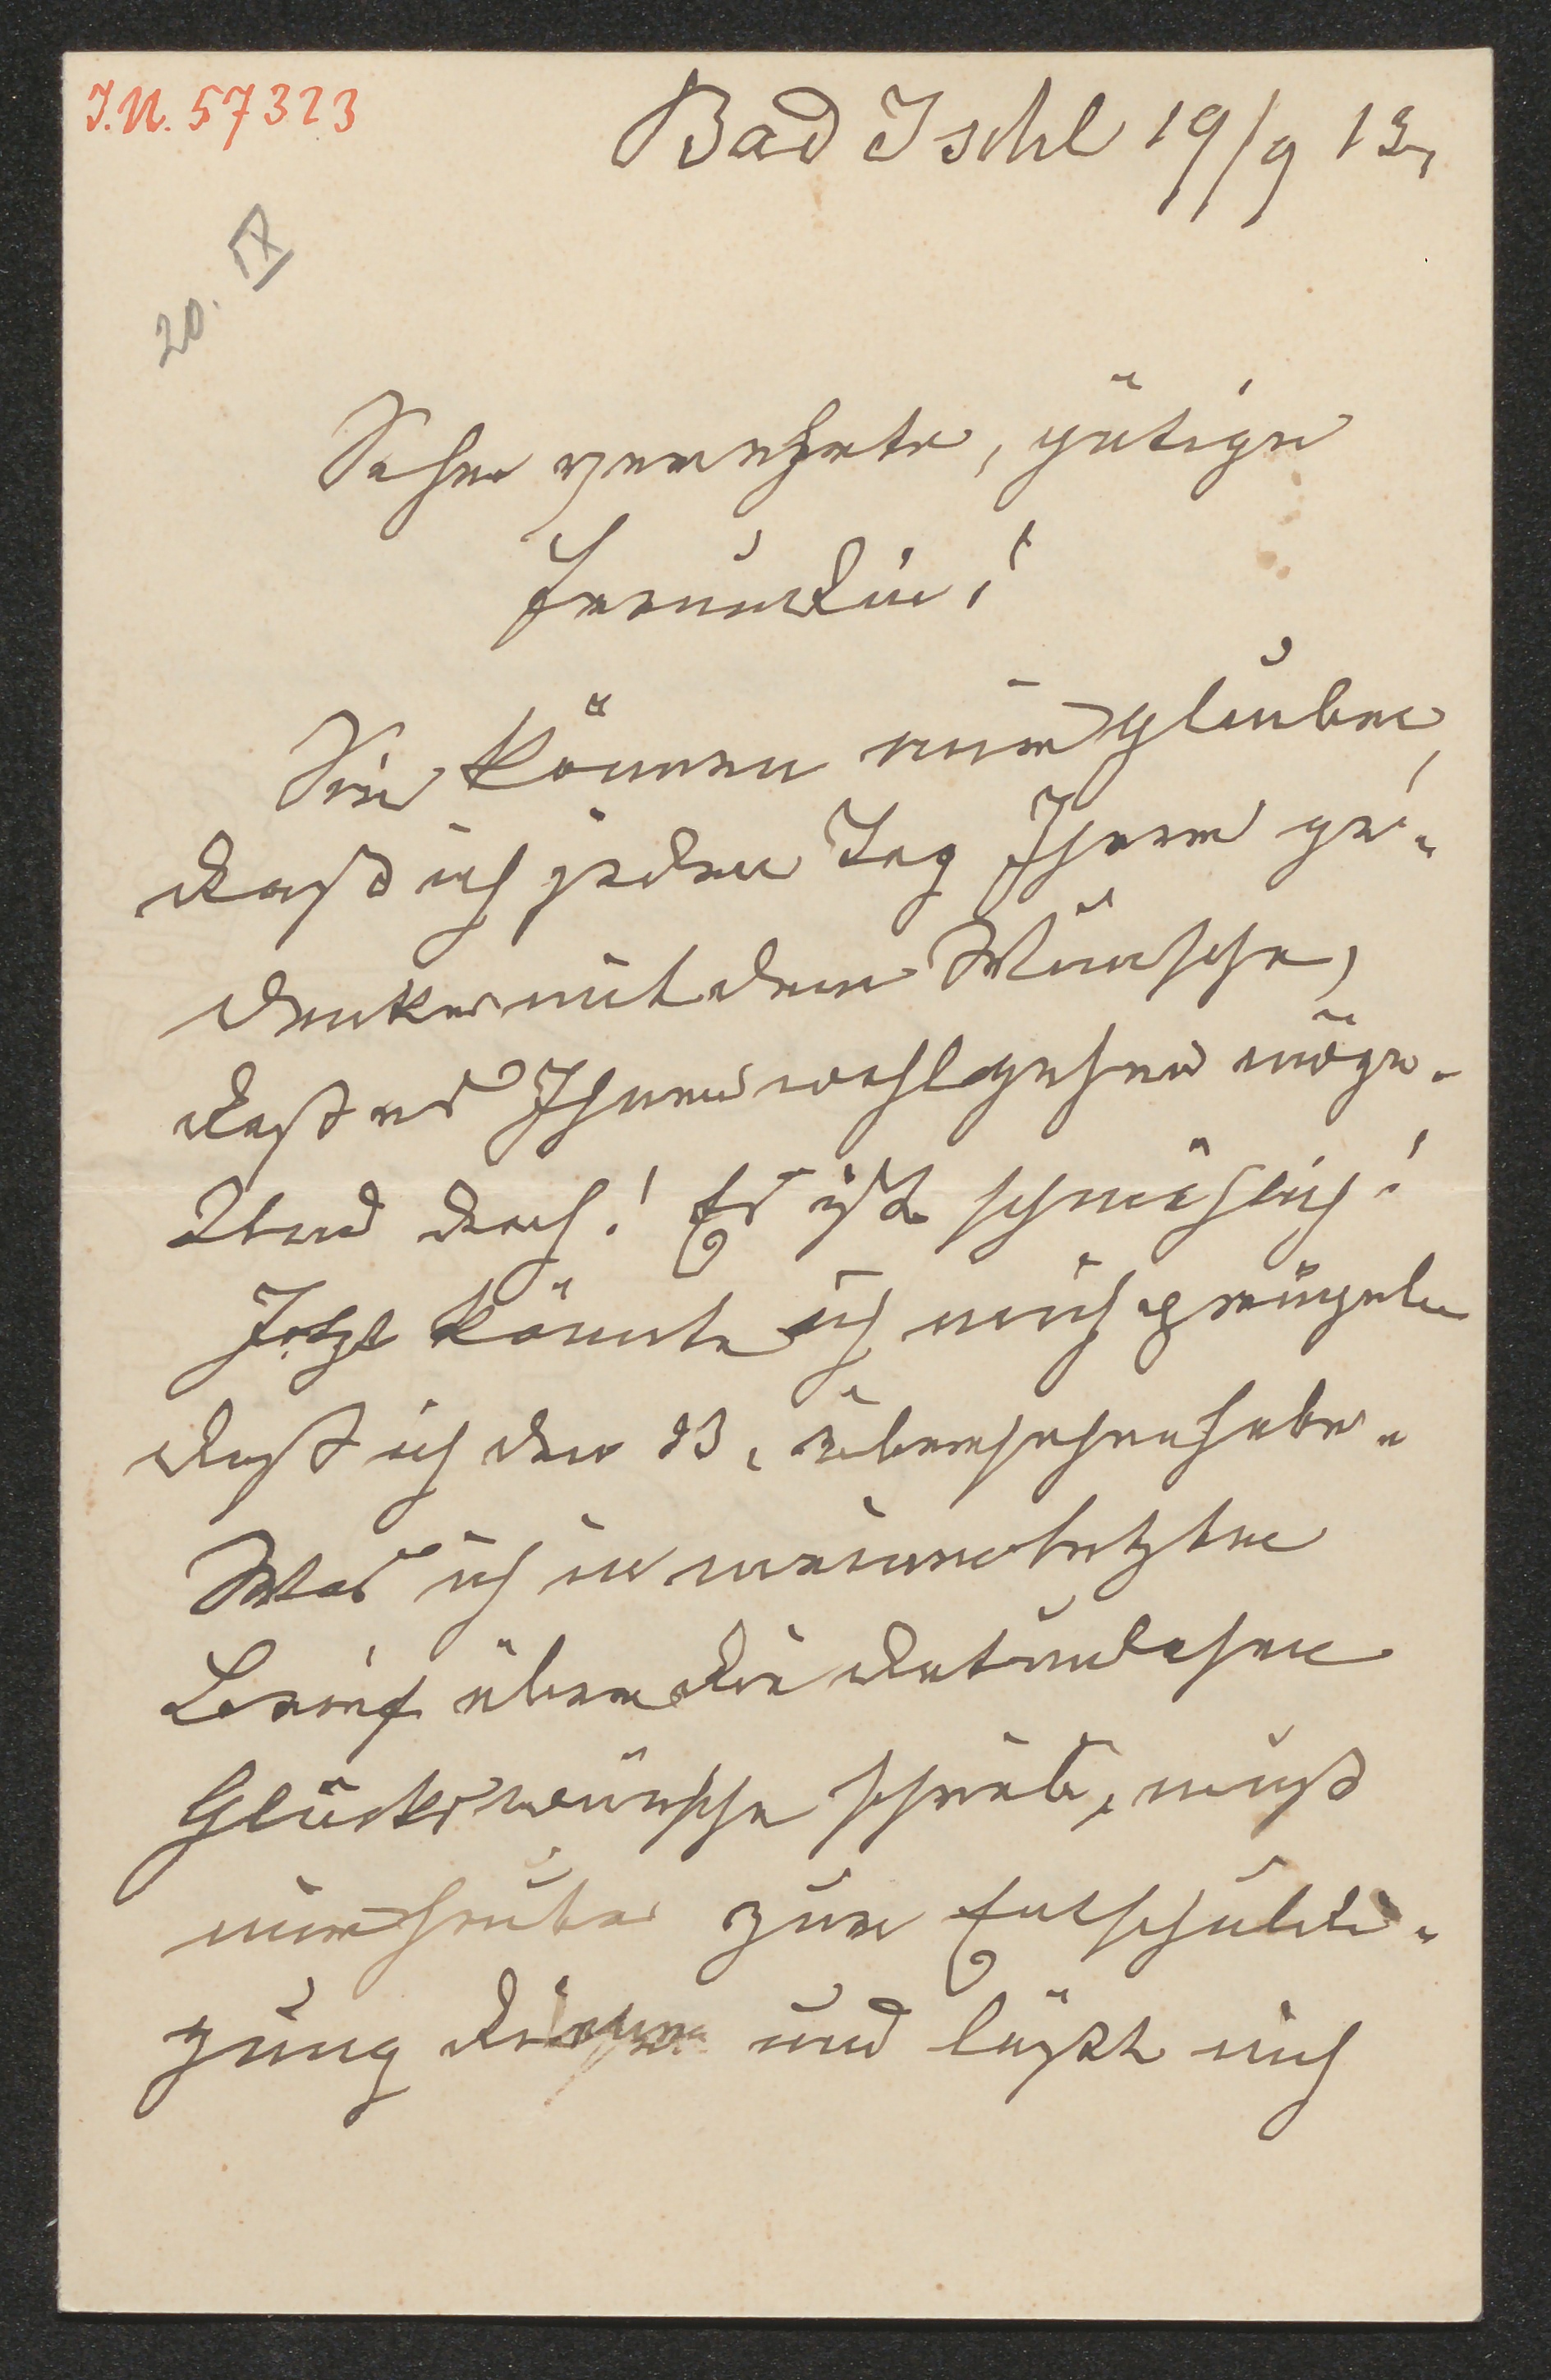 I.N. 57323
Bad Ischl 19/9 13.
20. IX
Sehr verehrte, gütige
Freundin!
Sie können mir glauben,
daß ich jeden Tag Ihrer ge-
denke mit dem Wunsche,
daß es Ihnen wohlgehen möge.
Und doch! Es ist schmählich!
Jetzt könnte ich mich prügeln
daß ich den 13. übersehen habe.
Was ich in meinem letzten
Brief über die
Glückwünsche schrieb, muß
mir heute zur Entschuldi-
gung dienen und läßt mich